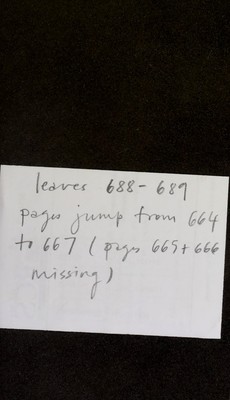 leaves 688-689
pages jump from 664
to 667 (pages 665+666
missing)